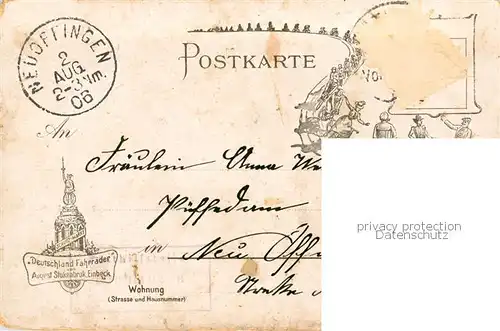 NEUOFFINGEN
2
AUG
2-3 Nm.
06
POSTKARTE
An
Fräulein Anna We
in Neu Off
"Deutschland Fahrräder"
August Stukenbrok, Einbeck
Wohnung
(Strasse und Hausnummer)
privacy protection
Datenschutz